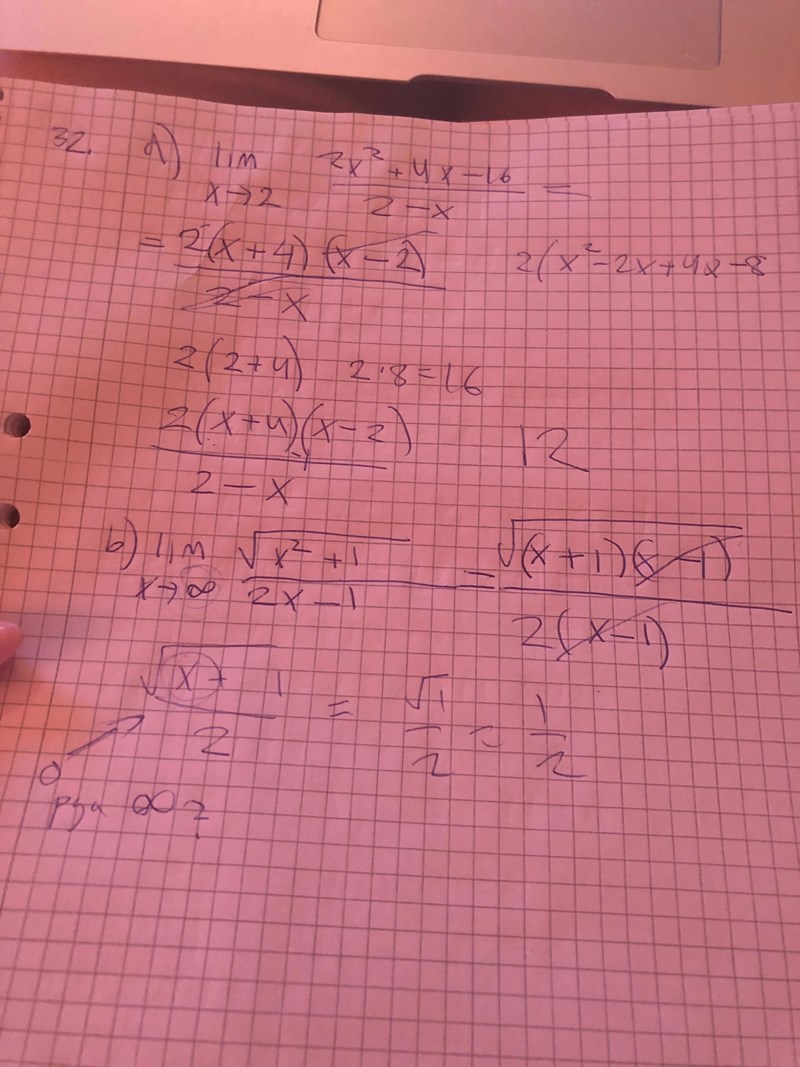 32. a) lim x→2 (2x² + 4x − 16)/(2 − x) =
= 2(x + 4)(x − 2)/(2 − x)   2(x² − 2x + 4x − 8
2(2 + 4)   2·8 = 16
2(x + 4)(x − 2)/(2 − x)   12
b) lim x→∞ √(x² + 1)/(2x − 1) = √((x + 1)(x − 1))/(2(x − 1))
√(x + 1)/2 = √1/2 = 1/2
0
pga ∞?